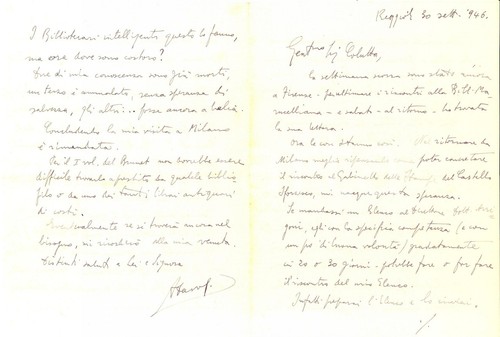 Reggiolo 30 sett. 946.
Gent.mo Sig. Coletta,
la settimana scorsa sono stato ancora
a Firenze - per ultimare i riscontri alla Bibl. Ma-
rucelliana - e sabato - al ritorno - ho trovato
la sua lettera.
Ora le cose stanno così: Nel ritornare da
Milano poter constatare
il riscontro al Gabinetto delle Stampe del Castello
Sforzesco, mi nacque questa speranza.
Se mandassi un Elenco al Direttore Dott.
egli con la specifica competenza (e con
un pò di buona volontà) gradatamente
in 20 o 30 giorni - potrebbe fare o far fare
il riscontro del mio Elenco.
Infatti preparai l'Elenco e lo inviai.
./.
I Bibliotecari intelligenti questo lo fanno,
ma ora dove sono costoro?
Due di mia conoscenza sono già morti,
un terzo è ammalato, senza speranza di
salvezza, gli altri... forse ancora a balia.
Concludendo la mia visita a Milano
è rimandata.
Per il I vol. del Brunet non dovrebbe essere
difficile trovarlo a prestito da qualche biblio-
filo o da uno dei tanti librai antiquari
di costì.
Eventualmente se si troverà ancora nel
bisogno, si ricorderà alla mia venuta.
Distinti saluti a Lei e Signora